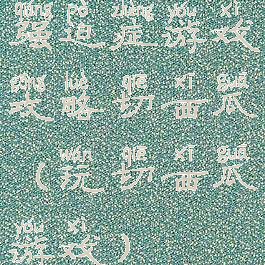 qiáng pò zhèng yóu xì
强迫症游戏
gōng lüè qiē xī guā
攻略切西瓜
wán qiē xī guā
（玩切西瓜
yóu xì
游戏）